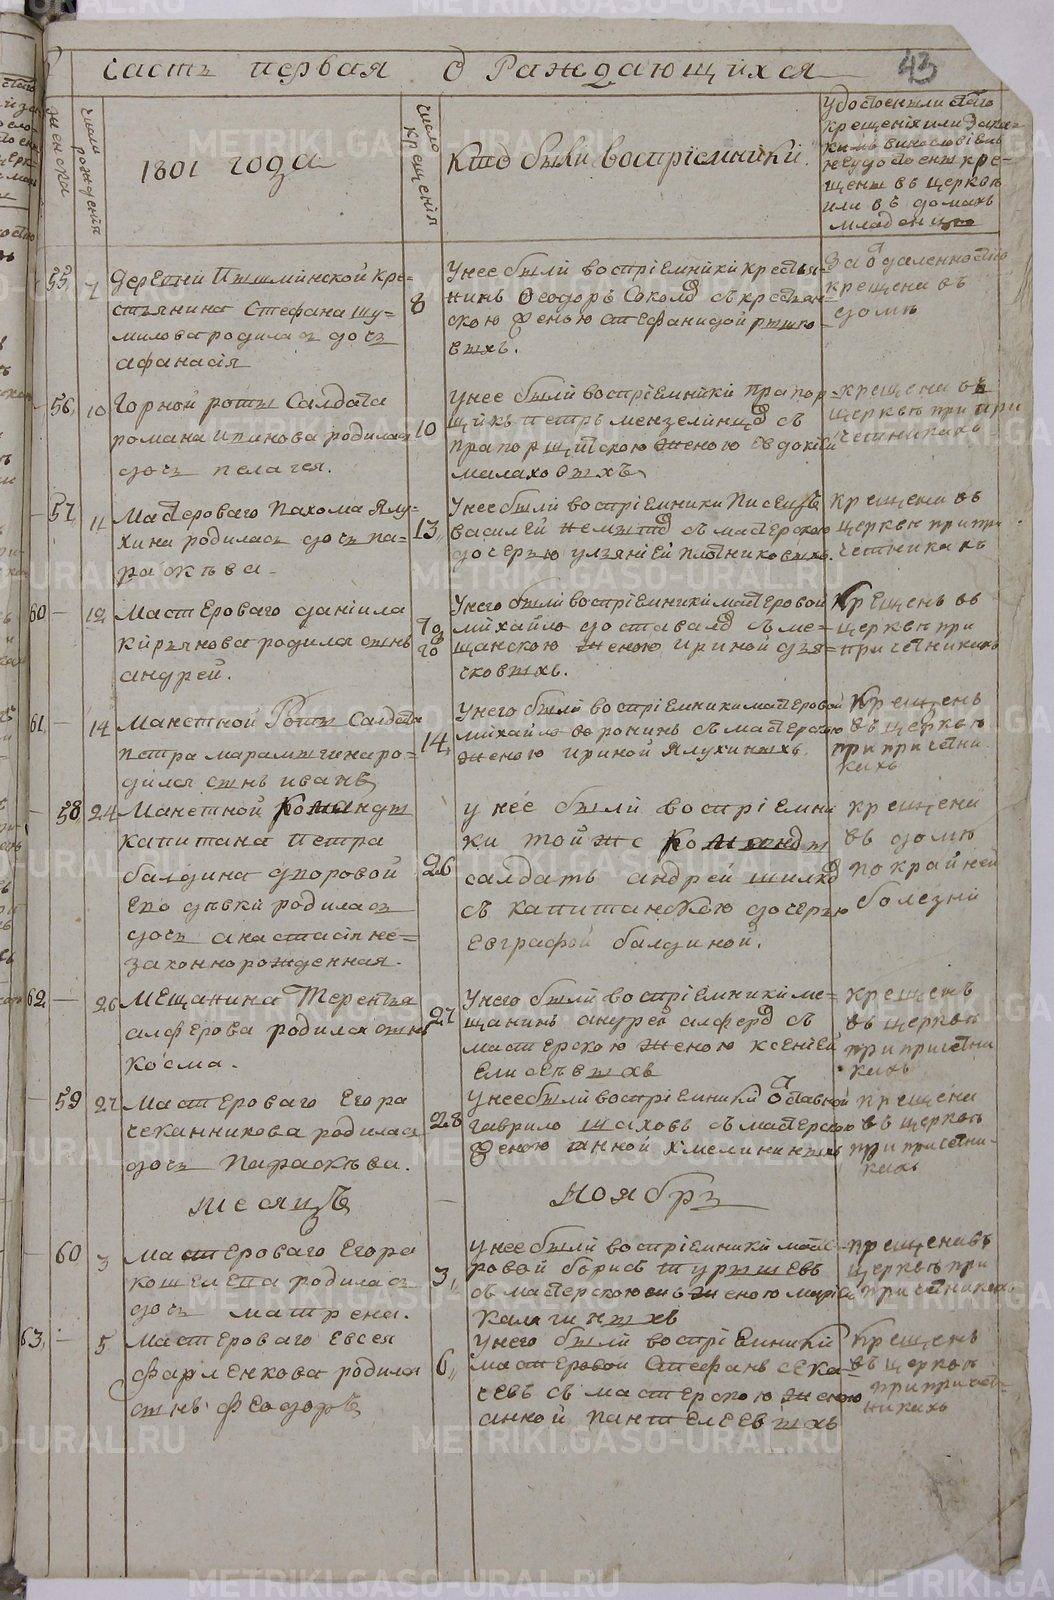 часть первая о Раждающихся
43
женска
число рожденія
1801 года
число крещенія
Кто были воспріемники.
удостоенъ ли
крещенія или
не удостоенъ кре-
щенъ въ церквѣ
или въ домахъ
младенцъ
55
7
деревни Пышминской кре-
стьянина Стефана Шу-
милова родилась дочь
афанасія
8
Унее были воспріемники крестья-
нинъ Ѳеодоръ Соколовъ съ крестьян-
скою женою стефанидой
выхъ.
За отдаленностію
крещена въ
домѣ
56
10
Горной роты Салдата
романа Иванова родилась
дочь пелагея.
10
унее были воспріемники прапор-
щикъ петръ мензелинцовъ съ
прапорщитскою женою евдокіей
малаховыхъ
крещена въ
церквѣ при при
четникахъ
57
11
Мастероваго Пахома Ялу-
хина родилась дочь па-
раскѣва
13
Унее были воспріемники Писецъ
василей съ мастерскою
дочерью улзяніей плотниковыхъ.
крещена въ
церквѣ при при
четникахъ
60
12
Мастероваго даніила
кирьянова родился сынъ
андрей.
Унего были воспріемники мастеровой
михайло доставаловъ съ ме-
щанскою женою ириной дья-
чковыхъ.
Крещенъ въ
церквѣ при
причетникахъ
61
14
Манетной Роты Салдата
петра марамыгина ро-
дился сынъ иванъ
14
Унего были воспріемники мастеровой
михайло воронинъ съ мастерскою
женою ириной Ялухиныхъ
Крещенъ
въ церквѣ
при причетни
кахъ
58
24
Манетной Команды
капитана петра
балдина дворовой
его дѣвки родилась
дочь анастасія не-
законнорожденная.
26
у нее были воспріемни
ки той же Команды
салдатъ андрей шилковъ
съ капитанскою дочерью
евграфой балдиной.
крещена
въ домѣ
по крайней
болезни
62
26
Мещанина Терентья
алферова родился сынъ
Косма.
27
Унего были воспріемники ме-
щанинъ андрей алферовъ съ
мастерскою женою ксеніей
елисеевыхъ
крещенъ
въ церквѣ
при причетни
кахъ
59
27
Мастероваго Егора
чеканникова родилась
дочь Параскѣва.
28
унее были воспріемники отставной
гаврило шаховъ съ мастерскою
женою анной хмелининыхъ
крещена
въ церквѣ
при причетни-
кахъ
месяцъ Ноябрь
60
3
Мастероваго Егора
кошелева родилась
дочь матрена.
3
унее были воспріемники масте
ровой борисъ турышевъ
съ мастерскою женою маріа
калягиныхъ
крещена въ
церквѣ при
причетникахъ
63
5
Мастероваго Евсея
фарленкова родился
сынъ феодоръ
6
унего были воспріемники
мастеровой Стефанъ сека-
чевъ съ мастерскою женою
анной пантелеевыхъ
Крещенъ
въ церквѣ
при причет-
никахъ
METRIKI.GASO-URAL.RU